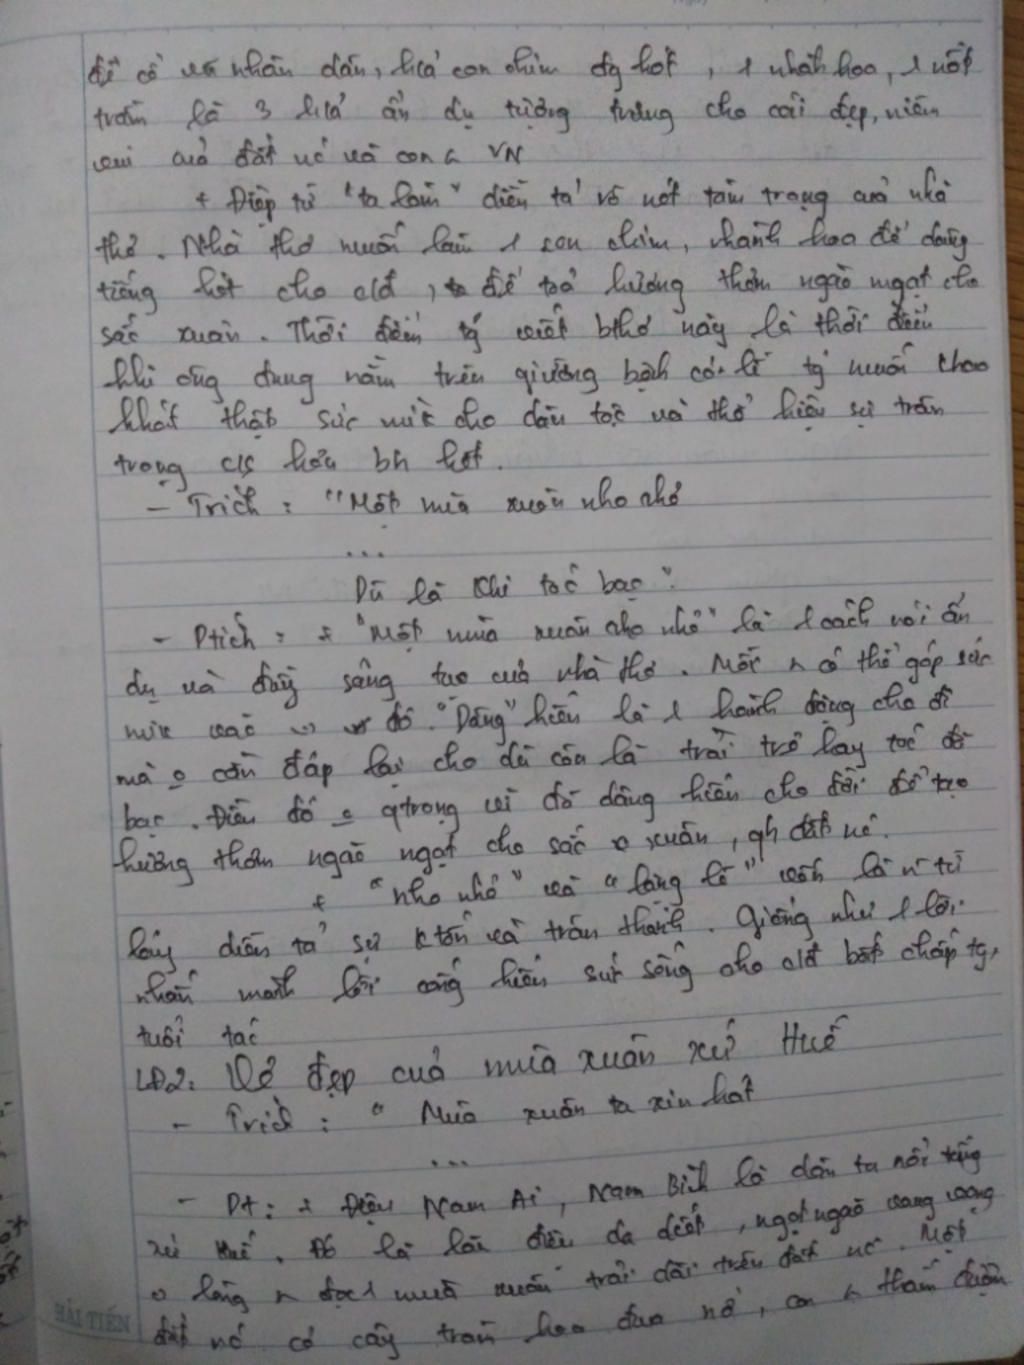 để cổ vũ nhân dân, h/ả con chim đg hót, 1 nhành hoa, 1 nốt
trầm là 3 h/ả ẩn dụ tượng trưng cho cái đẹp, niềm
vui của đất nc và con VN
+ Điệp từ "ta làm" diễn tả rõ nét tâm trạng của nhà
thơ. Nhà thơ muốn làm 1 con chim, nhành hoa để dâng
tiếng hót cho để toả hương thơm ngào ngạt cho
sắc xuân. Thời điểm tg viết bthơ này là thời điểm
khi ông đang nằm trên giường bệnh có lẽ tg muốn
khát thật sức mik cho dân tộc và thể hiện sự trân
trọng c/s hơn bh hết.
- Trích: "Một mùa xuân nho nhỏ
...
Dù là khi tóc bạc".
- Ptích: + "Một mùa xuân nho nhỏ" là 1 cách nói ẩn
dụ và đầy sáng tạo của nhà thơ. Mỗi có thể góp sức
mik vào đó. "Dâng" hiến là 1 hành động cho đi
mà o cần đáp lại cho dù còn là trai trẻ hay tóc đã
bạc. Điều đó o qtrọng vì đã dâng hiến cho đời để tạo
hương thơm ngào ngạt cho sắc xuân, qh đất nc.
+ "nho nhỏ" và "lặng lẽ" vốn là từ
láy diễn tả sự ktốn và trân thành. Giống như 1 lời
nhấn mạnh lối cống hiến sức sống cho bất chấp tg,
tuổi tác
LĐ2: Vẻ đẹp của mùa xuân xứ Huế
- Trích: "Mùa xuân ta xin hát
...
- Pt: + Điệu Nam Ai, Nam Bình là dân ta nổi tiếng
xứ Huế. Đó là làn điệu da diết, ngọt ngào vang vọng
o lòng đọc 1 mùa xuân trải dài trên đất nc. Một
đất nc có cây tràn hoa đua nở, con thấm đượm
HẢI TIẾN